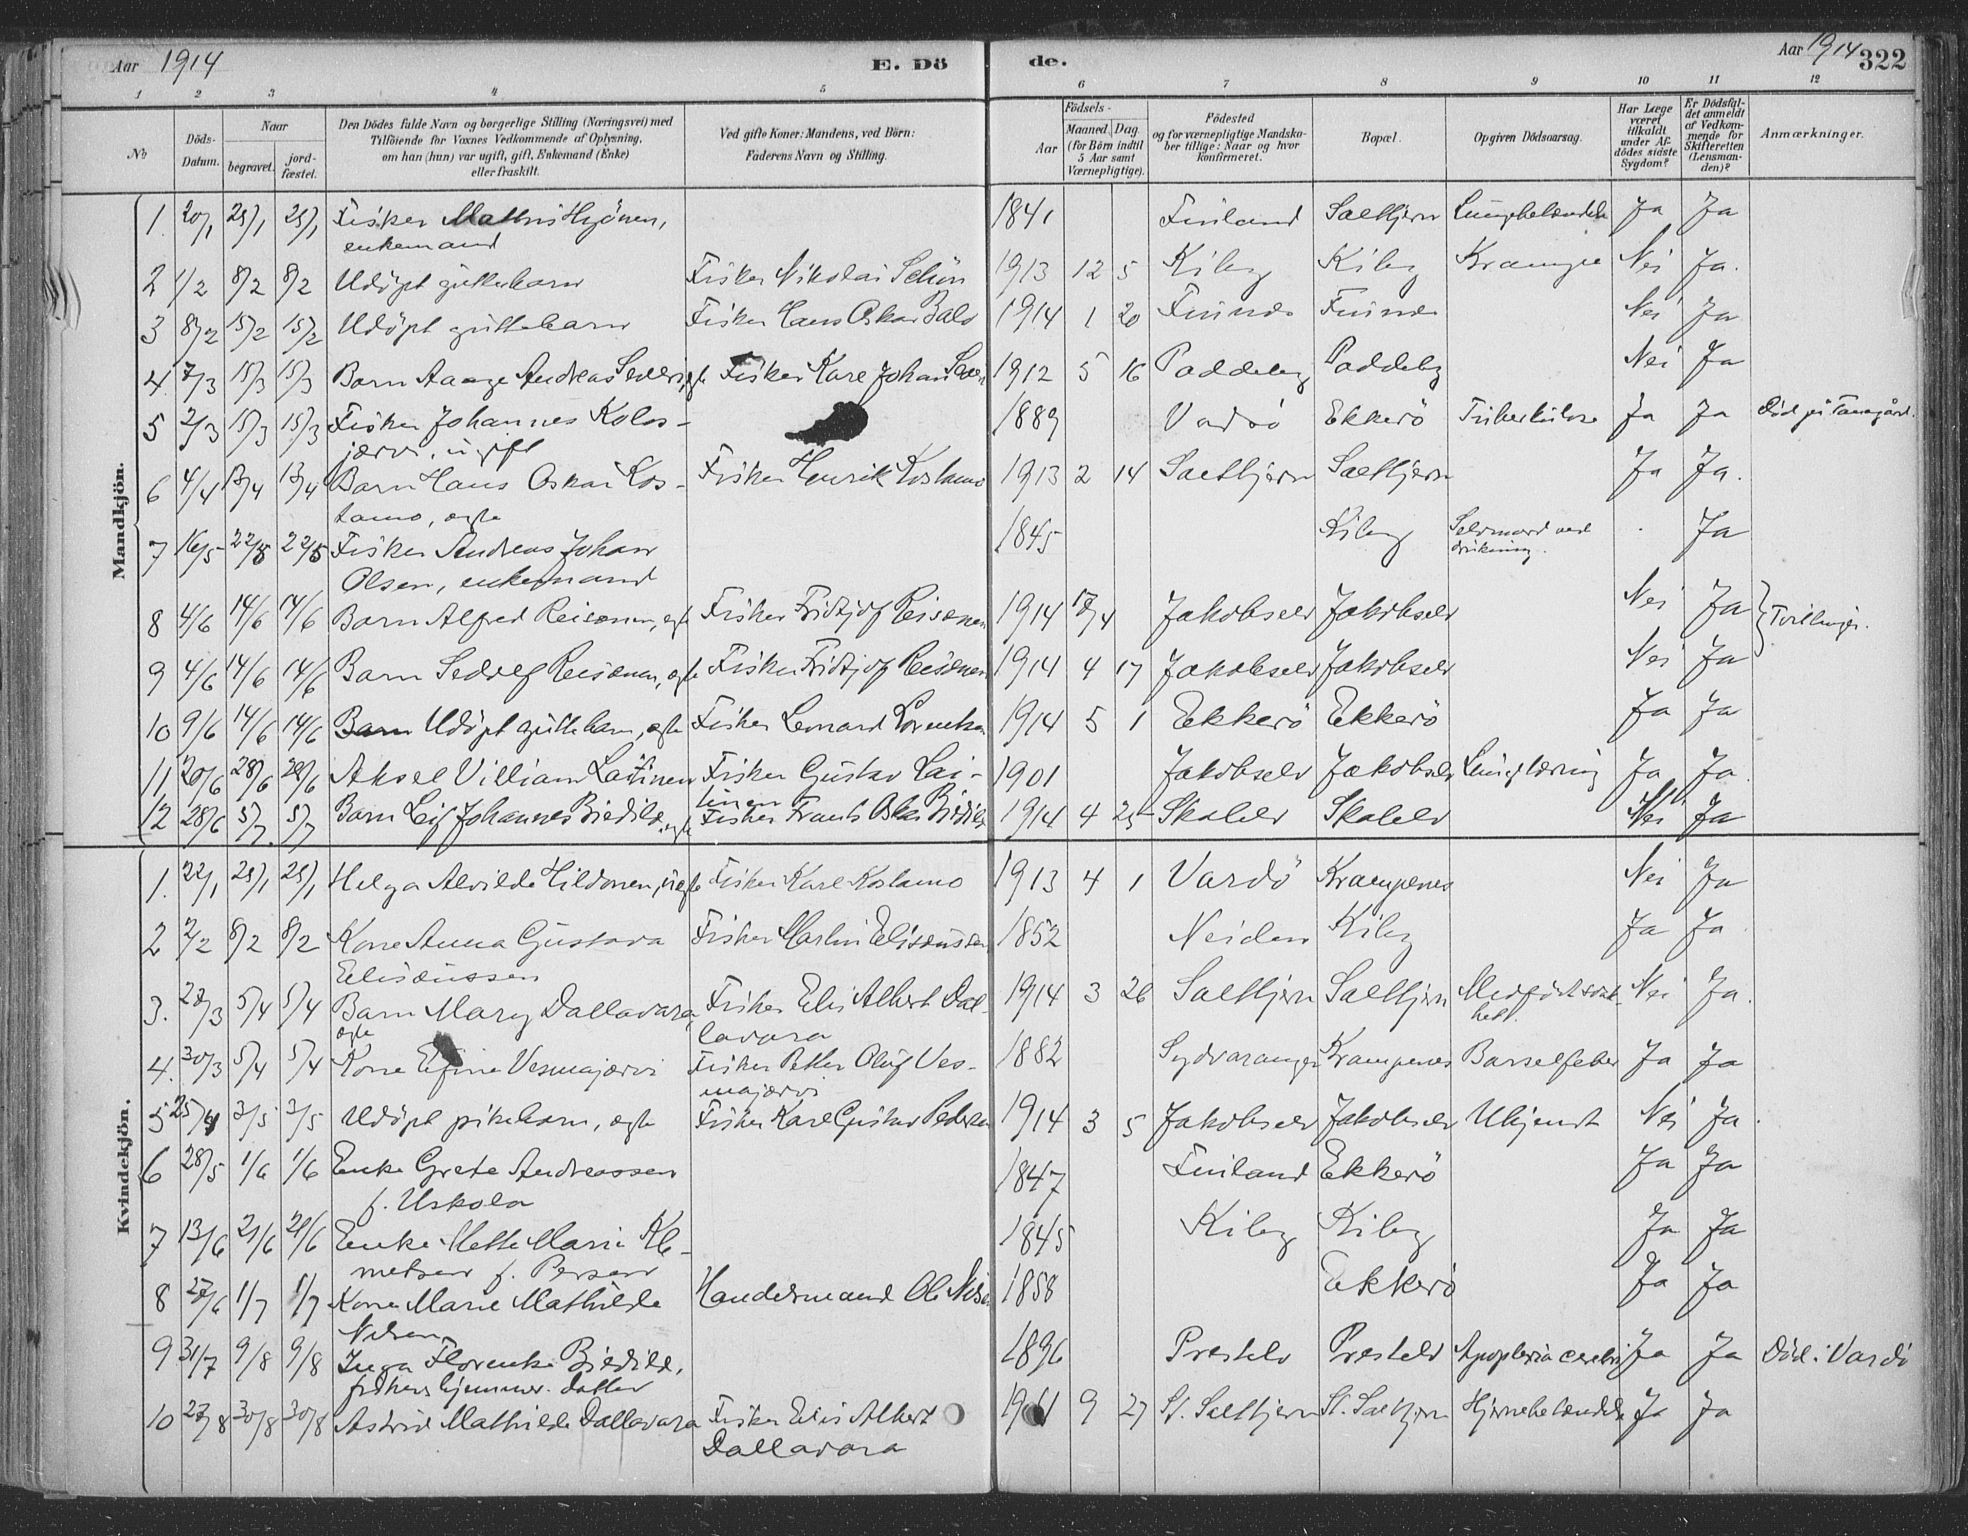 Aar 1914 E. Dö
de. Aar 1914 322
1 2 3 4 5 6 7 8 9 10 11 12
No
Döds-Datum.
Naar
begravet.
jord-fæstet.
Den Dödes fulde Navn og borgerlige Stilling (Næringsvei) med
Tilföiende for Voxnes Vedkommende af Oplysning,
om han (hun) var ugift, gift, Enkemand (Enke)
eller fraskilt.
Ved gifte Koner: Mandens, ved Börn:
Faderens Navn og Stilling.
Födsels-
Aar
Maaned. Dag
(for Börn indtil
5 Aar samt
Værnepligtige).
Födested
og for værnepligtige Mandska-
ber tillige: Naar og hvor
konfirmeret.
Bopæl.
Opgiven Dödsaarsag.
Har Læge
været
tilkaldt
under Af-
dödes sidste
Sygdom?
Er Dödsfal-
det anmeldt
af Vedkom-
mende for
Skifteretten
(Lensman-
den)?
Anmærkninger.
Mandkjön.
1. 20/1 25/1 25/1 Fisker Mathis Hyönen, 1841 Finland Saltkjern Lungebetændelse Ja Ja
enkemand
2 1/2 8/2 8/2 Udöpt guttebarn Fisker Nikolai Schön 1913 12 5 Kiby Kiby Krampe Nei Ja.
3 8/2 15/2 15/2 Udöpt guttebarn Fisker Hans Oskar Balo 1914 1 20 Finnes Finnes Nei Ja
4. 7/3 15/3 15/3 Barn Aage Andreas ægte Fisker Karl Johan 1912 5 16 Paddeby Paddeby Nei Ja
5 2/3 15/3 15/3 Fisker Johannes Kolos- 1889 Vadsö Ekkerö Tuberkulose Ja Ja Död på Tanagård.
järvi, ugift
6 4/4 13/4 13/4 Barn Hans Oskar Kos- Fisker Henrik Kostamo 1913 2 14 Saltkjern Saltkjern Ja Ja.
tamo, ægte
7 16/5 22/5 22/5 Fisker Andreas Johan 1845 Kiby Selvmord ved Ja
Olsen, enkemand drukning.
8 4/6 14/6 14/6 Barn Alfred Reisænen, ægte Fisker Fridtjof Reisænen 1914 17/4 Jakobselv Jakobselv Nei Ja Tvillinger.
9 4/6 14/6 14/6 Barn Sedolf Reisænen, ægte Fisker Fridtjof Reisænen 1914 4 17 Jakobselv Jakobselv Nei Ja
10 9/6 14/6 14/6 Barn Udöpt guttebarn, ægte Fisker Leonard Lorentsen 1914 5 1 Ekkerö Ekkerö Ja Ja
11 20/6 28/6 28/6 Aksel Villiam Laitinen Fisker Gustav Lai- 1901 Jakobselv Jakobselv Lungetæring Ja Ja.
tinen
12 28/6 5/7. 5/7 Barn Leif Johannes Biedilæ, ægte Fisker Frants Oskar Biedilæ 1914 4 25 Skalelv Skalelv Nei Ja
Kvindekjön.
1. 22/1 25/1 25/1 Helga Alvilde Hildonen, uægte Fisker Karl Kostamo 1913 4 1 Vardö Krampenes Nei Ja
2 2/2 8/2 8/2 Kone Anna Gustava Fisker Martin Eliseussen 1852 Neiden Kiby Ja Ja
Eliseussen
3. 28/3 5/4 5/4 Barn Mary Dallavara, Fisker Elis Albert Dal- 1914 3 26 Saltkjern Saltkjern Medfödt svak- Nei Ja.
ægte lavara het.
4. 30/3 5/4 5/4 Kone Vesmajærvi Fisker Petter Oluf Ves- 1882 Sydvaranger Krampenes Barselfeber Ja Ja
majærvi
5 25/4 3/5 3/5 Udöpt pikebarn, ægte Fisker Karl Gustav Pedersen 1914 3 5 Jakobselv Jakobselv Ukjendt Nei Ja.
6 28/5 1/6 1/6 Enke Grete Andreassen 1847 Finland Ekkerö Ja Ja
f. Uskola
7 13/6 21/6 21/6 Enke Mette Marie Kle- 1845 Kiby Kiby Ja Ja
metsen f. Persen
8 27/6 1/7 1/7 Kone Marie Mathilde Handelsmand Ole Nilsen 1858 Ekkerö Ja Ja
Nilsen
9 31/7 9/8 9/8 Inga Florentse Biedilæ, 1896 Prestelv Prestelv Apoplexia cerebri Ja Ja Död i Vardö
fiskers hjemmev. datter
10 23/8 30/8 30/8 Astrid Mathilde Dallavara Fisker Elis Albert 9 27 St. Saltkjern St. Saltkjern Hjernebetændelse Ja Ja
Dallavara